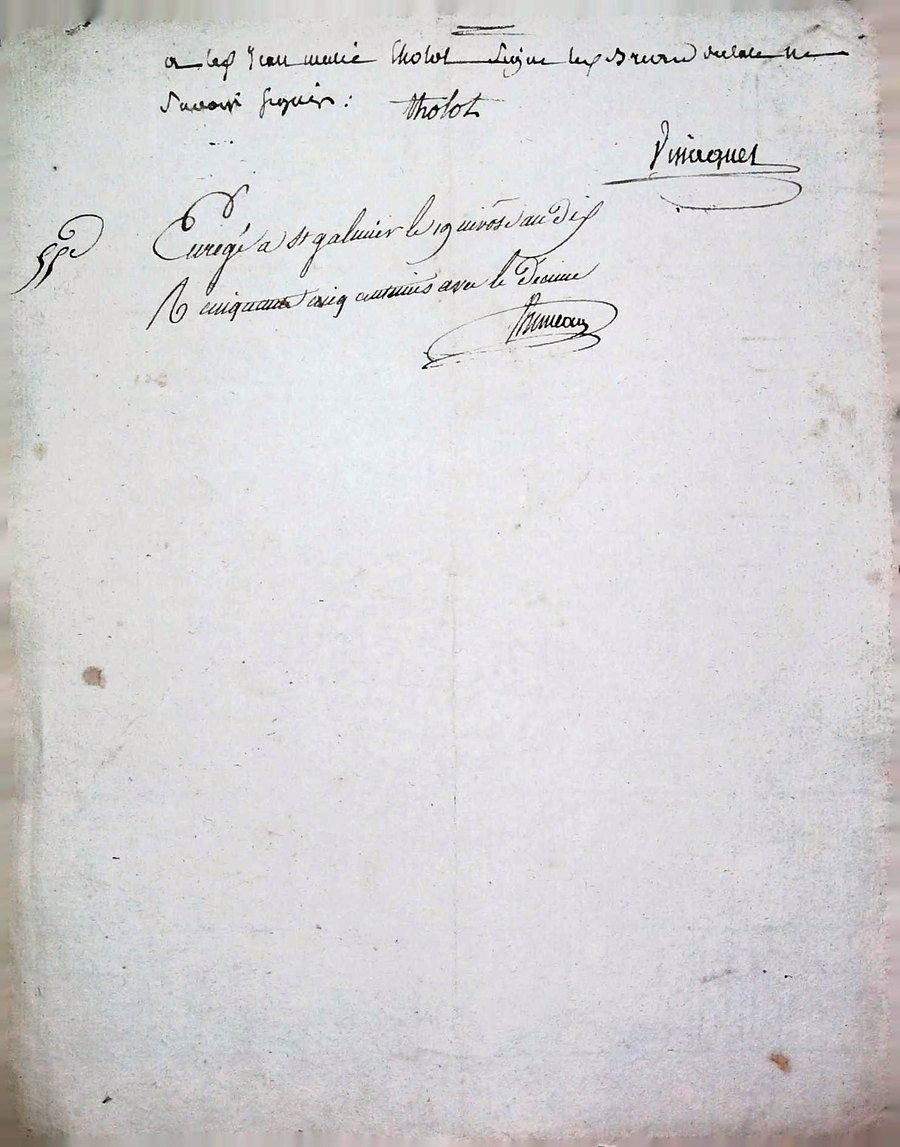 a led Jean marie tholot Signe led Brun declare ne
Savoir Signer : tholot
55c
Enregé a St galmier le 19 nivôse an dix
R cinquante cinq centimes avec le Decime